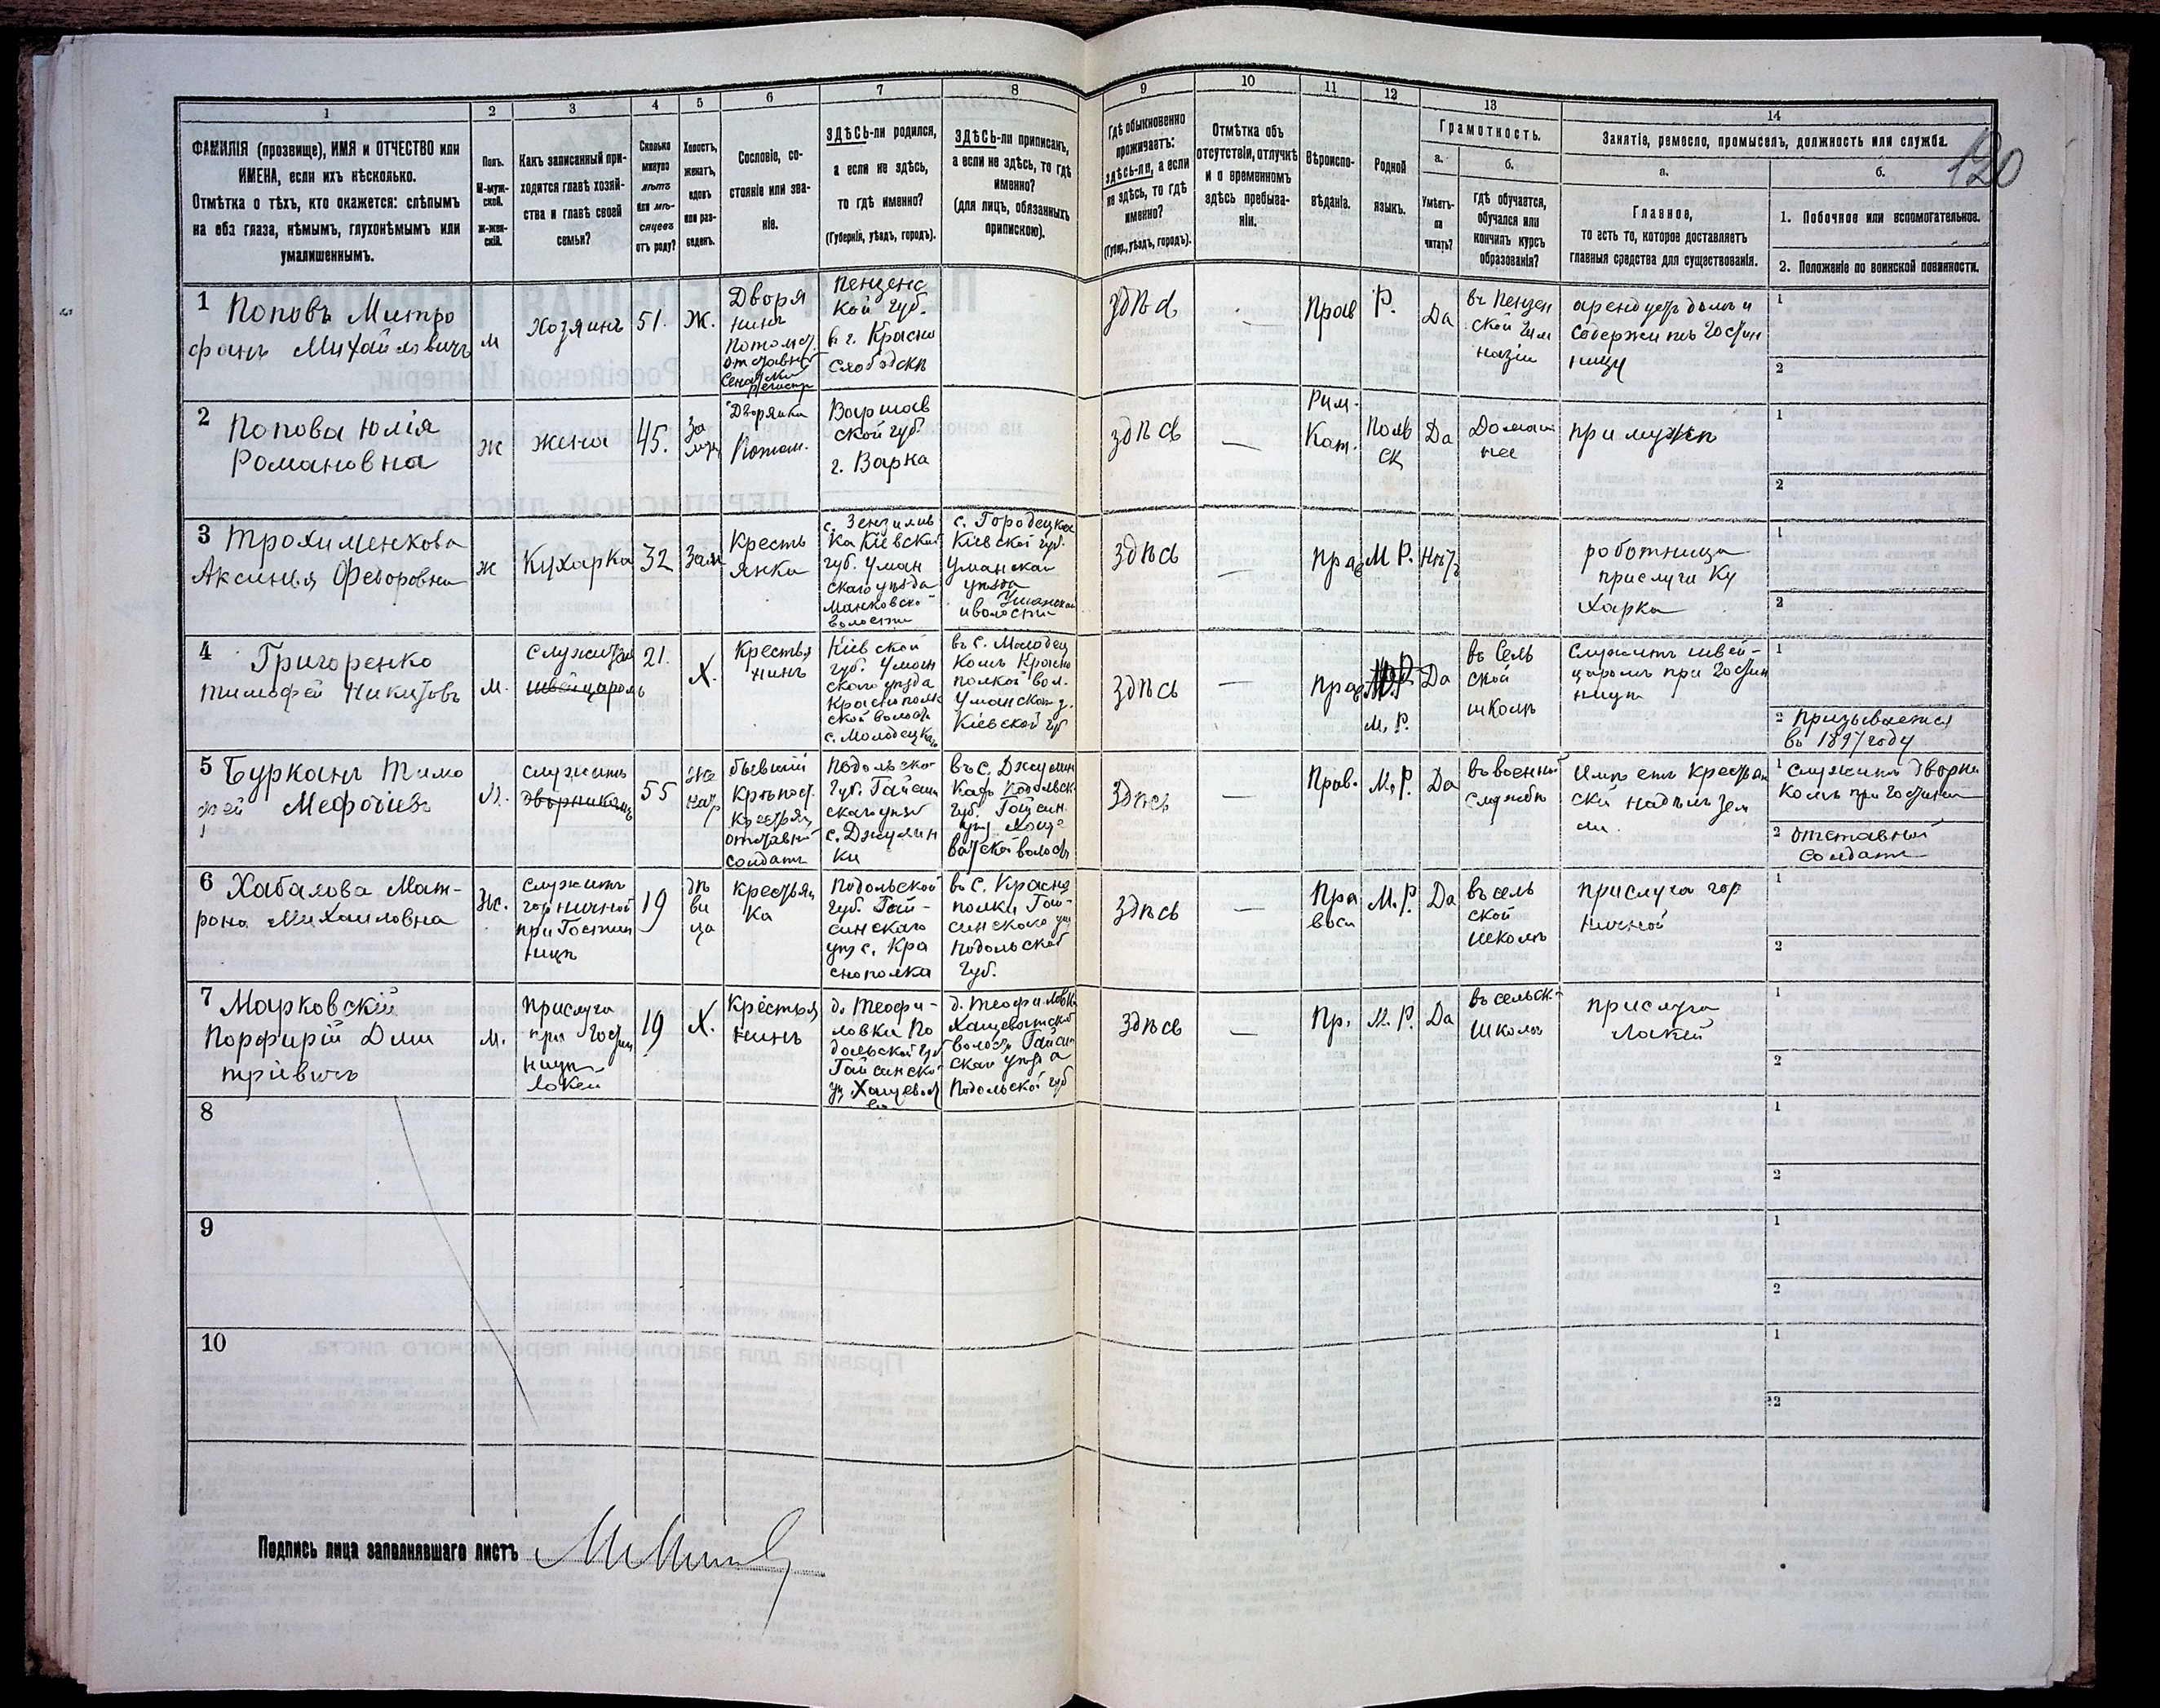 120
1
2
3
4
5
6
7
8
9
10
11
12
13
14
ФАМИЛІЯ (прозвище), ИМЯ и ОТЧЕСТВО или
ИМЕНА, если ихъ нѣсколько.
Отмѣтка о тѣхъ, кто окажется: слѣпымъ
на оба глаза, нѣмымъ, глухонѣмымъ или
умалишеннымъ.
Полъ.
М-муж-
ской.
ж-жен-
скій.
Какъ записанный при-
ходится главѣ хозяй-
ства и главѣ своей
семьи?
Сколько
минуло
лѣтъ
или мѣ-
сяцевъ
отъ роду?
Холостъ,
женатъ,
вдовъ
или раз-
веденъ.
Сословіе, со-
стояніе или зва-
ніе.
ЗДѢСЬ-ли родился,
а если не здѣсь,
то гдѣ именно?
(Губернія, уѣздъ, городъ).
ЗДѢСЬ-ли приписанъ,
а если не здѣсь, то гдѣ
именно?
(для лицъ, обязанныхъ
припискою).
Гдѣ обыкновенно
проживаетъ:
здѣсь-ли, а если
не здѣсь, то гдѣ
именно?
(Губер., уѣздъ, городъ).
Отмѣтка объ
отсутствіи, отлучкѣ
и о временномъ
здѣсь пребыва-
ніи.
Вѣроиспо-
вѣданіе.
Родной
языкъ.
Грамотность.
а.
Умѣетъ-
ли
читать?
б.
Гдѣ обучается,
обучался или
кончилъ курсъ
образованія?
Занятіе, ремесло, промыселъ, должность или служба.
а.
Главное,
то есть то, которое доставляетъ
главныя средства для существованія.
б.
1. Побочное или вспомогательное.
2. Положеніе по воинской повинности.
1 Поповъ Митро
фанъ Михайловичъ
м
Хозяинъ
51.
Ж.
Дворя
нинъ
потомст.
отставной
Пензенс
кой губ.
въ г. Красно
слободскѣ
здѣсь
—
Прав
Р.
Да
въ Пензен
ской гим
назіи
арендуетъ домъ и
содержитъ гостин
ницу
1
2
2 Попова Юлія
Романовна
ж
жена
45.
За
муж
Дворянка
Потом.
Варшав
ской губ.
г. Варка
здѣсь
—
Рим.
Кат.
Поль
ск
Да
Домаш
нее
при мужѣ
1
2
3 Трохименкова
Аксинья Федоровна
ж
Кухарка
32
Зам
Кресть
янка
ка Кіевской
губ. Уман
скаго уѣзда
Маньковской
волости
с. Городецкое
Кіевской губ.
Уманскаго
уѣзда
Уманской
волости
здѣсь
—
Прав
М. Р.
Нѣтъ
роботница
прислуга Ку
харка
1
2
4 Григоренко
Тимофей Никитовъ
м.
служитъ
швейцаромъ
21.
Х.
Крестья
нинъ
Кіевской
губ. Уман
скаго уѣзда
Краснополь
ской волости
с. Молодецкаго
въ с. Молодец
комъ Красно
полкой вол.
Уманскаго у.
Кіевской губ
здѣсь
—
прав
М. Р.
Да
въ Сель
ской
школѣ
Служитъ швей-
царомъ при гостин
ницѣ
1
2 призывается
въ 1897 году
5 Бурканъ Тимо
фей Мефодіевъ
М.
служитъ
дворникомъ
55
Же
натъ
бывшій
крѣпост.
крестьян
отставной
солдатъ
Подольской
губ. Гайсин
скаго уѣзд
с. Джулин
ки
въ с. Джулин
кахъ Подольск
губ. Гайсин.
уѣз Хоще
ватской волости
Здѣсь
Прав.
М. Р.
Да
въ военной
службѣ
Имѣетъ крестьян
скій надѣлъ зем
ли.
1 служитъ дворни
комъ при гостин
2 отставной
солдатъ
6 Хабалова Мат-
рона Михаиловна
Ж.
служитъ
горничной
при Гостин
ницѣ
19
дѣ
ви
ца
крестьян
ка
Подольской
губ. Гай-
синскаго
уѣз с. Кра
снополка
въ с. Красно
полки Гай-
синскаго уѣз
Подольской
губ.
Здѣсь
—
Пра
восл
М. Р.
Да
въ сель
ской
школѣ
прислуга гор
ничной
1
2
7 Марковскій
Порфирій Дми
тріевичъ
м.
Прислуга
при гостин
ницѣ
лакей
19
Х.
Крестья
нинъ
д. Теофи-
ловки По
дольской губ
Гайсинско
уѣз Хащеват
д. Теофиловки
Хащеватской
волости Гайсин
скаго уѣзда
Подольской губ
Здѣсь
—
Пр.
М. Р.
Да
въ сельск.
школѣ
прислуга
лакей
1
2
8
1
2
9
1
2
10
1
2
Подпись лица заполнявшаго листъ